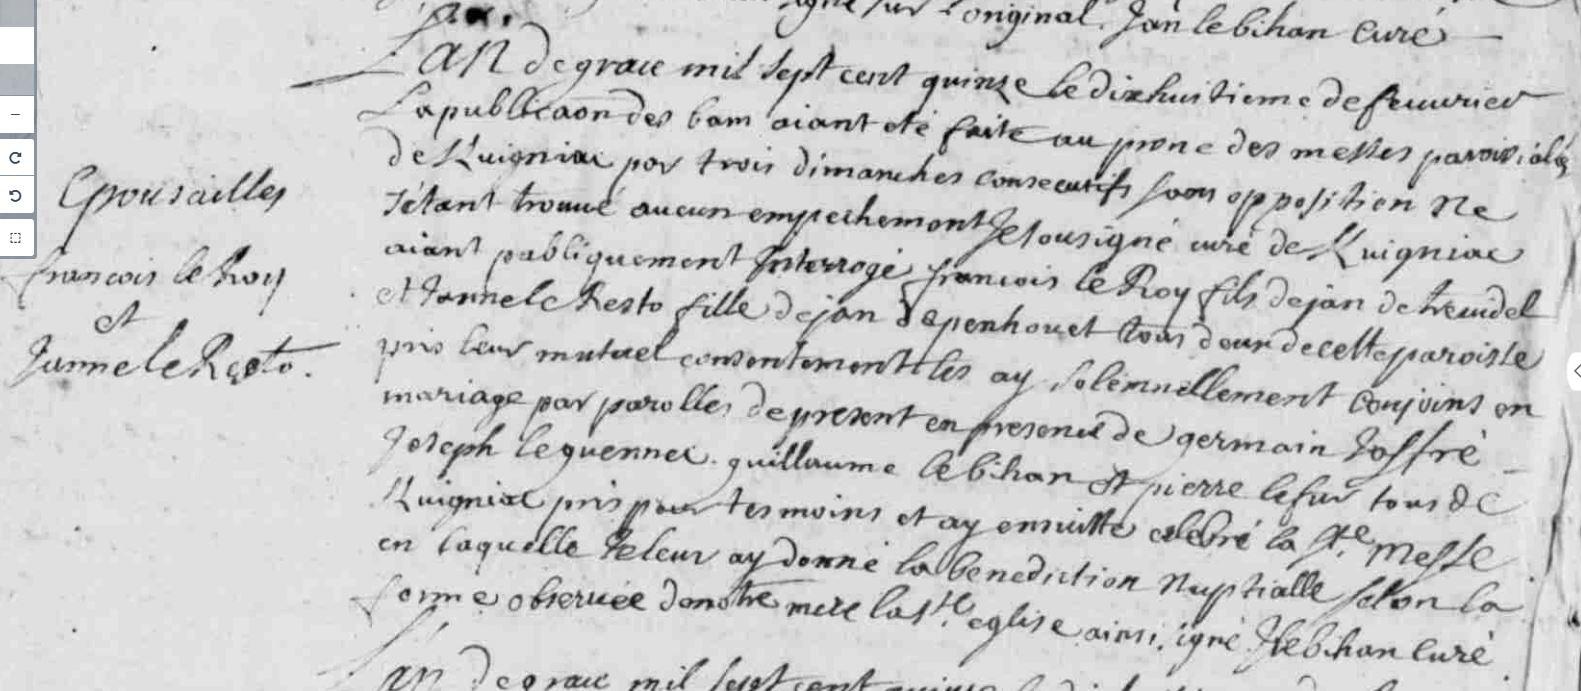 signé sur l'original. Jan le bihan Curé
L'an de grace mil sept cent quinze le dixhuitieme de feuvrier
La publicaon des bans aiant eté faite au prone des messes paroissiales
de Kuigniac par trois dimanches consecutifs sans opposition ne
s'étant trouué aucun empechement Je sousigné curé de Kuigniac
aiant publiquement Interrogé francois le Roy fils de jan de treuidel
et Janne le Resto fille de jan de penhouet tous deux de cette paroisse
pris leur mutuel consentement les ay solemnellement conjoins en
mariage par parolles de present en presence de germain Joffré
Joseph le guennec guillaume le bihan et pierre le fur tous de
Kuigniac pris pour tesmoins et ay ensuitte celebré la Ste messe
en laquelle Je leur ay donné la benediction Nuptialle selon la
forme obseruée de notre mere la Ste eglise ainsi signé J le bihan Curé
L'an de grace mil sept cent quinze
Epousailles
francois le Roy
et
Janne le Resto.